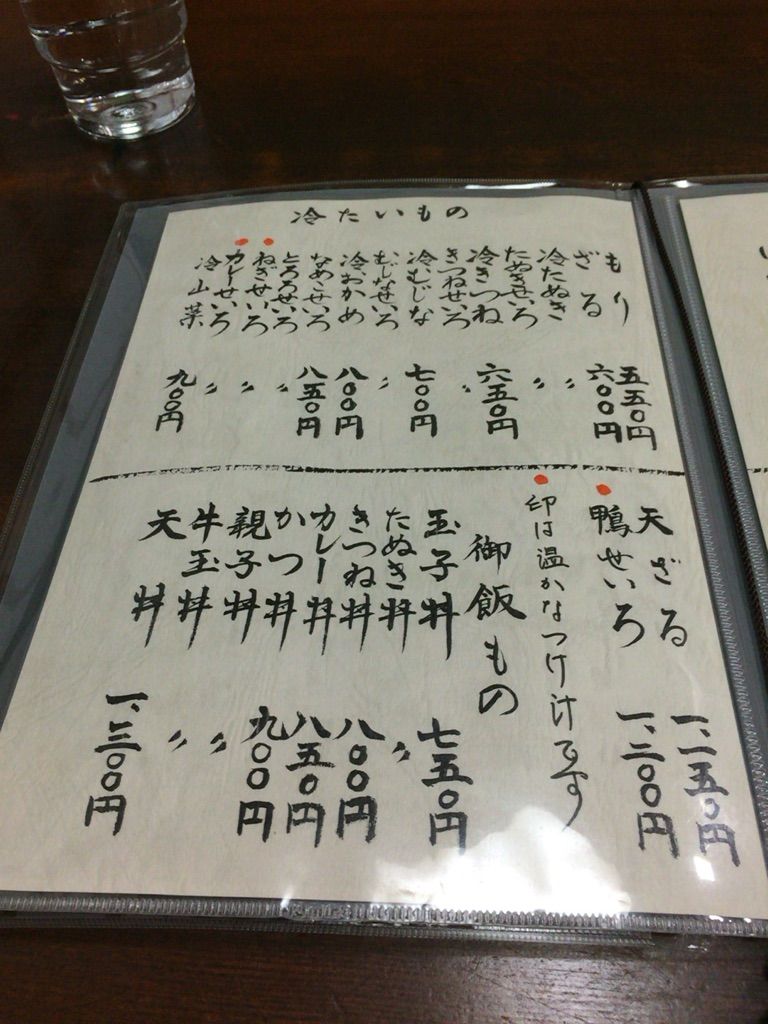 冷たいもの
もり 五五〇円
ざる 六〇〇円
冷たぬき 〃
たぬきせいろ 〃
冷きつね 六五〇円
きつねせいろ 〃
冷むじな 七〇〇円
むじなせいろ 〃
冷おかめ 八〇〇円
なめこせいろ 八五〇円
とろろせいろ 〃
ねぎせいろ 〃
カレーせいろ 〃
冷山菜 九〇〇円
天ざる 一、二五〇円
鴨せいろ 一、三〇〇円
印は温かなつけ汁です
御飯もの
玉子丼 七五〇円
たぬき丼 〃
きつね丼 八〇〇円
カレー丼 八五〇円
かつ丼 九〇〇円
親子丼 〃
牛玉丼 〃
天丼 一、三〇〇円